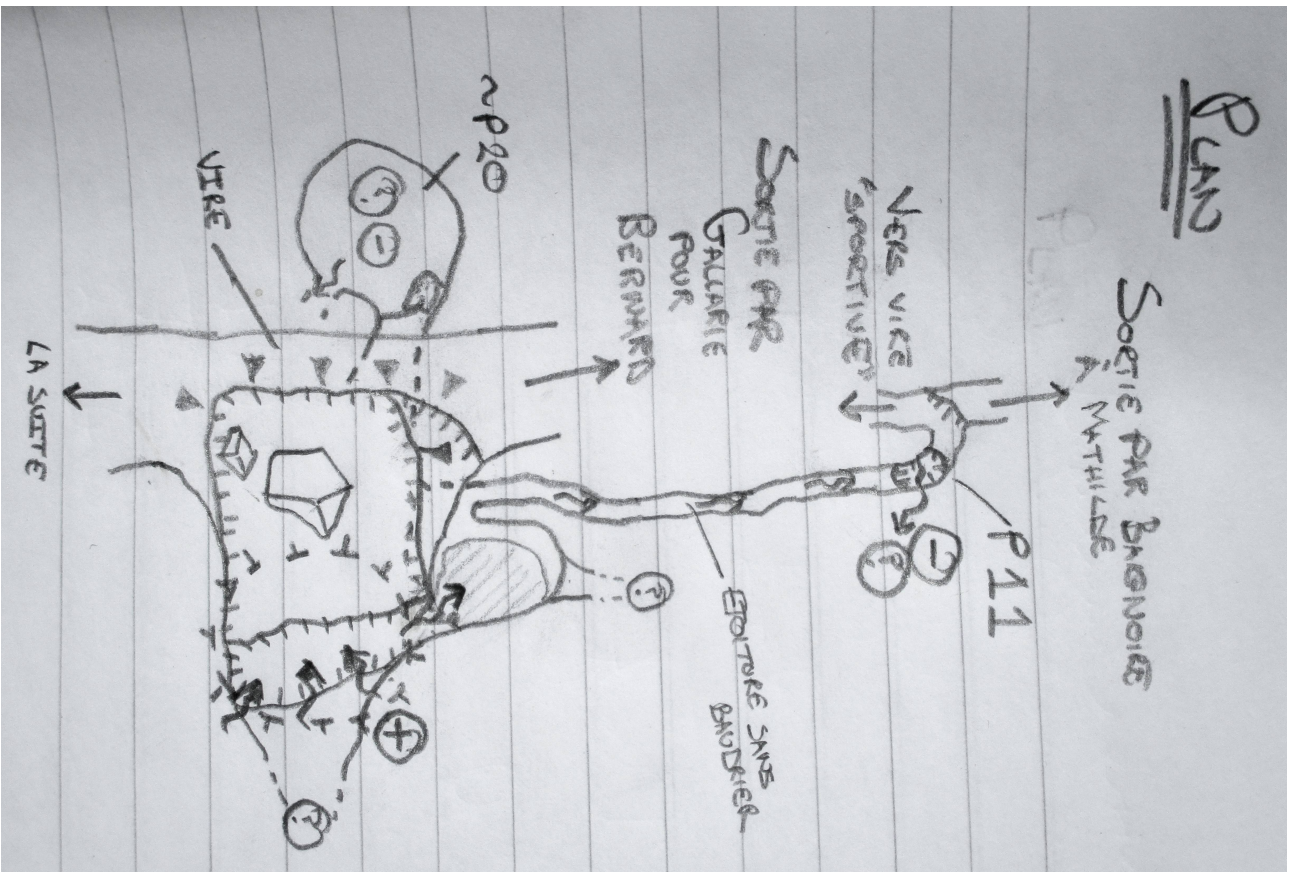 PLAN
SORTIE PAR BAIGNOIRE
À MATHILDE
VERS VIRE
"SPORTIVE"
P11
SORTIE PAR
GALLARIE
POUR
BERNARD
ETOITURE SANS
BAUDRIER
~P20
VIRE
LA SUITE
?
-
-
?
?
+
?